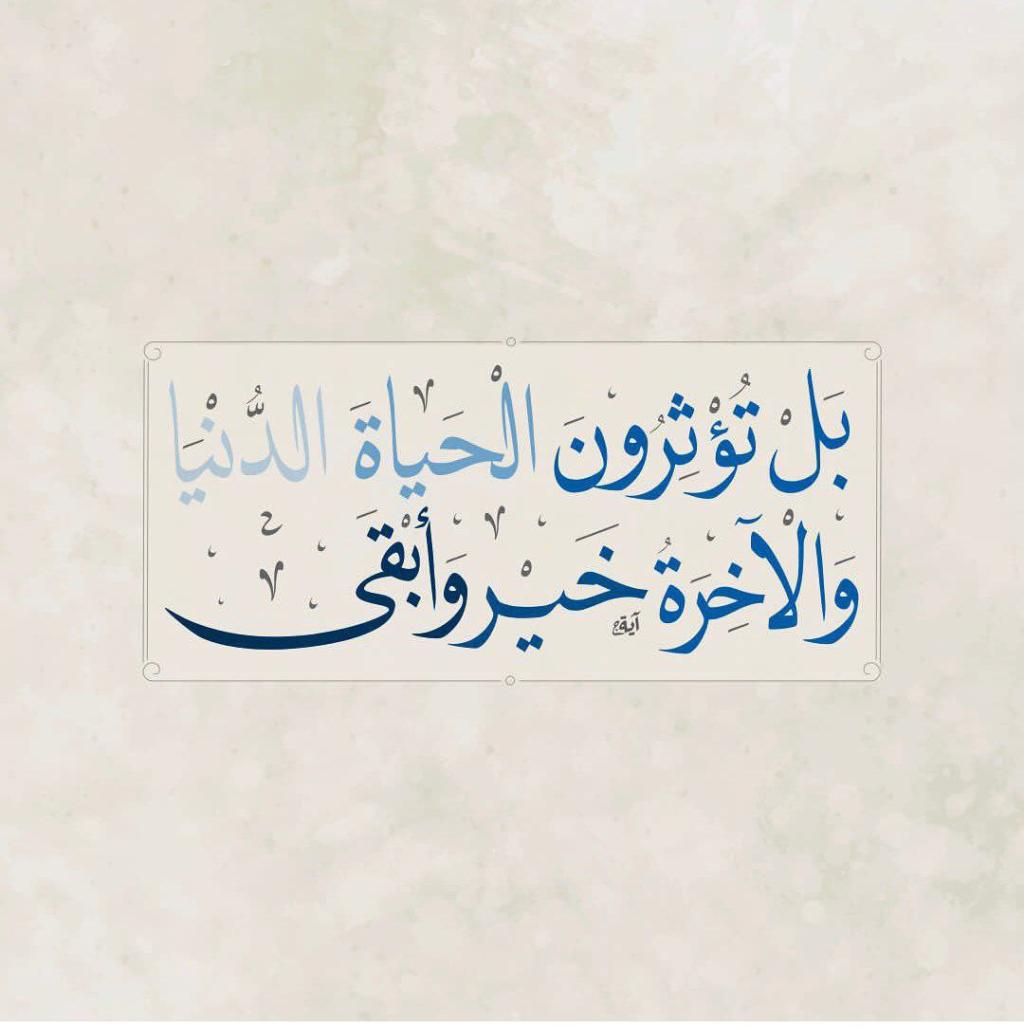 بَلْ تُؤْثِرُونَ الْحَيَاةَ الدُّنْيَا
وَالْآخِرَةُ خَيْرٌ وَأَبْقَى
آية